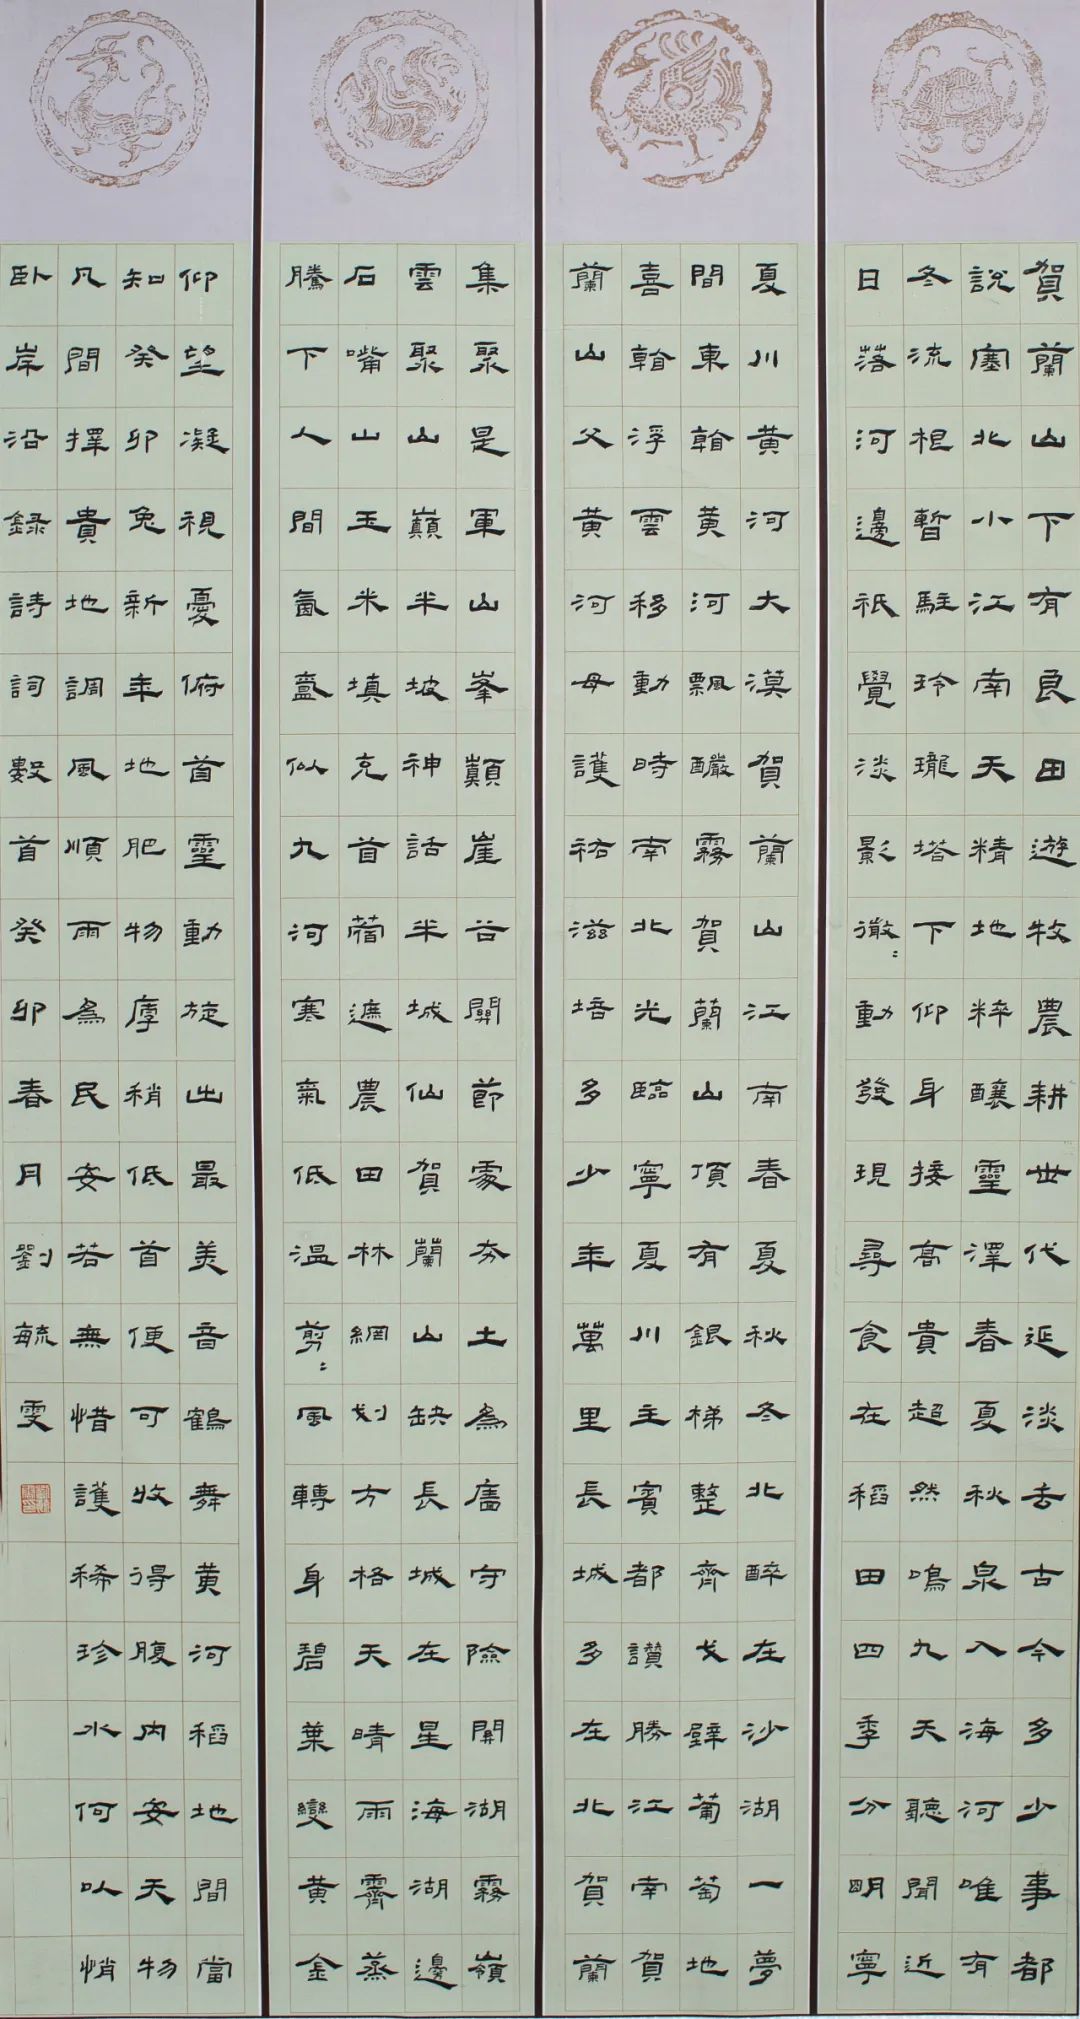 賀蘭山下有良田遊牧農耕世代延淡去古今多少事都
說塞北小江南天精地粹釀靈澤春夏秋泉入海河唯有
冬流根暫駐玲瓏塔下仰身接高貴超然鳴九天聽聞近
日落河邊祇覺淡影微〻動發現尋食在稻田四季分明寧
夏川黃河大漠賀蘭山江南春夏秋冬北醉在沙湖一夢
間東黃河飄釅霧賀蘭山頂有銀梯整齊戈壁葡萄地
喜浮雲移動時南北光臨寧夏川主賓都讚勝江南賀
蘭山父黃河母護祐滋培多少年萬里長城多在北賀蘭
集聚是軍山峯巔崖谷關節處夯土為守險關湖霧嶺
雲聚山巔半坡神話半城仙賀蘭山缺長城在星海湖邊
石嘴山玉米填充首蓿遮農田林網划方格天晴雨霽蒸
騰下人間似九河寒氣低溫剪〻風轉身碧葉變黃金
仰望凝視憂俯首靈動旋出最美音鶴舞黃河稻地間當
知癸卯兔新年地肥物厚稍低首便可收得腹內安天物
凡間擇貴地調風順雨為民安若無惜護稀珍水何以悄
臥岸沿錄詩詞數首癸卯春月劉毓雯